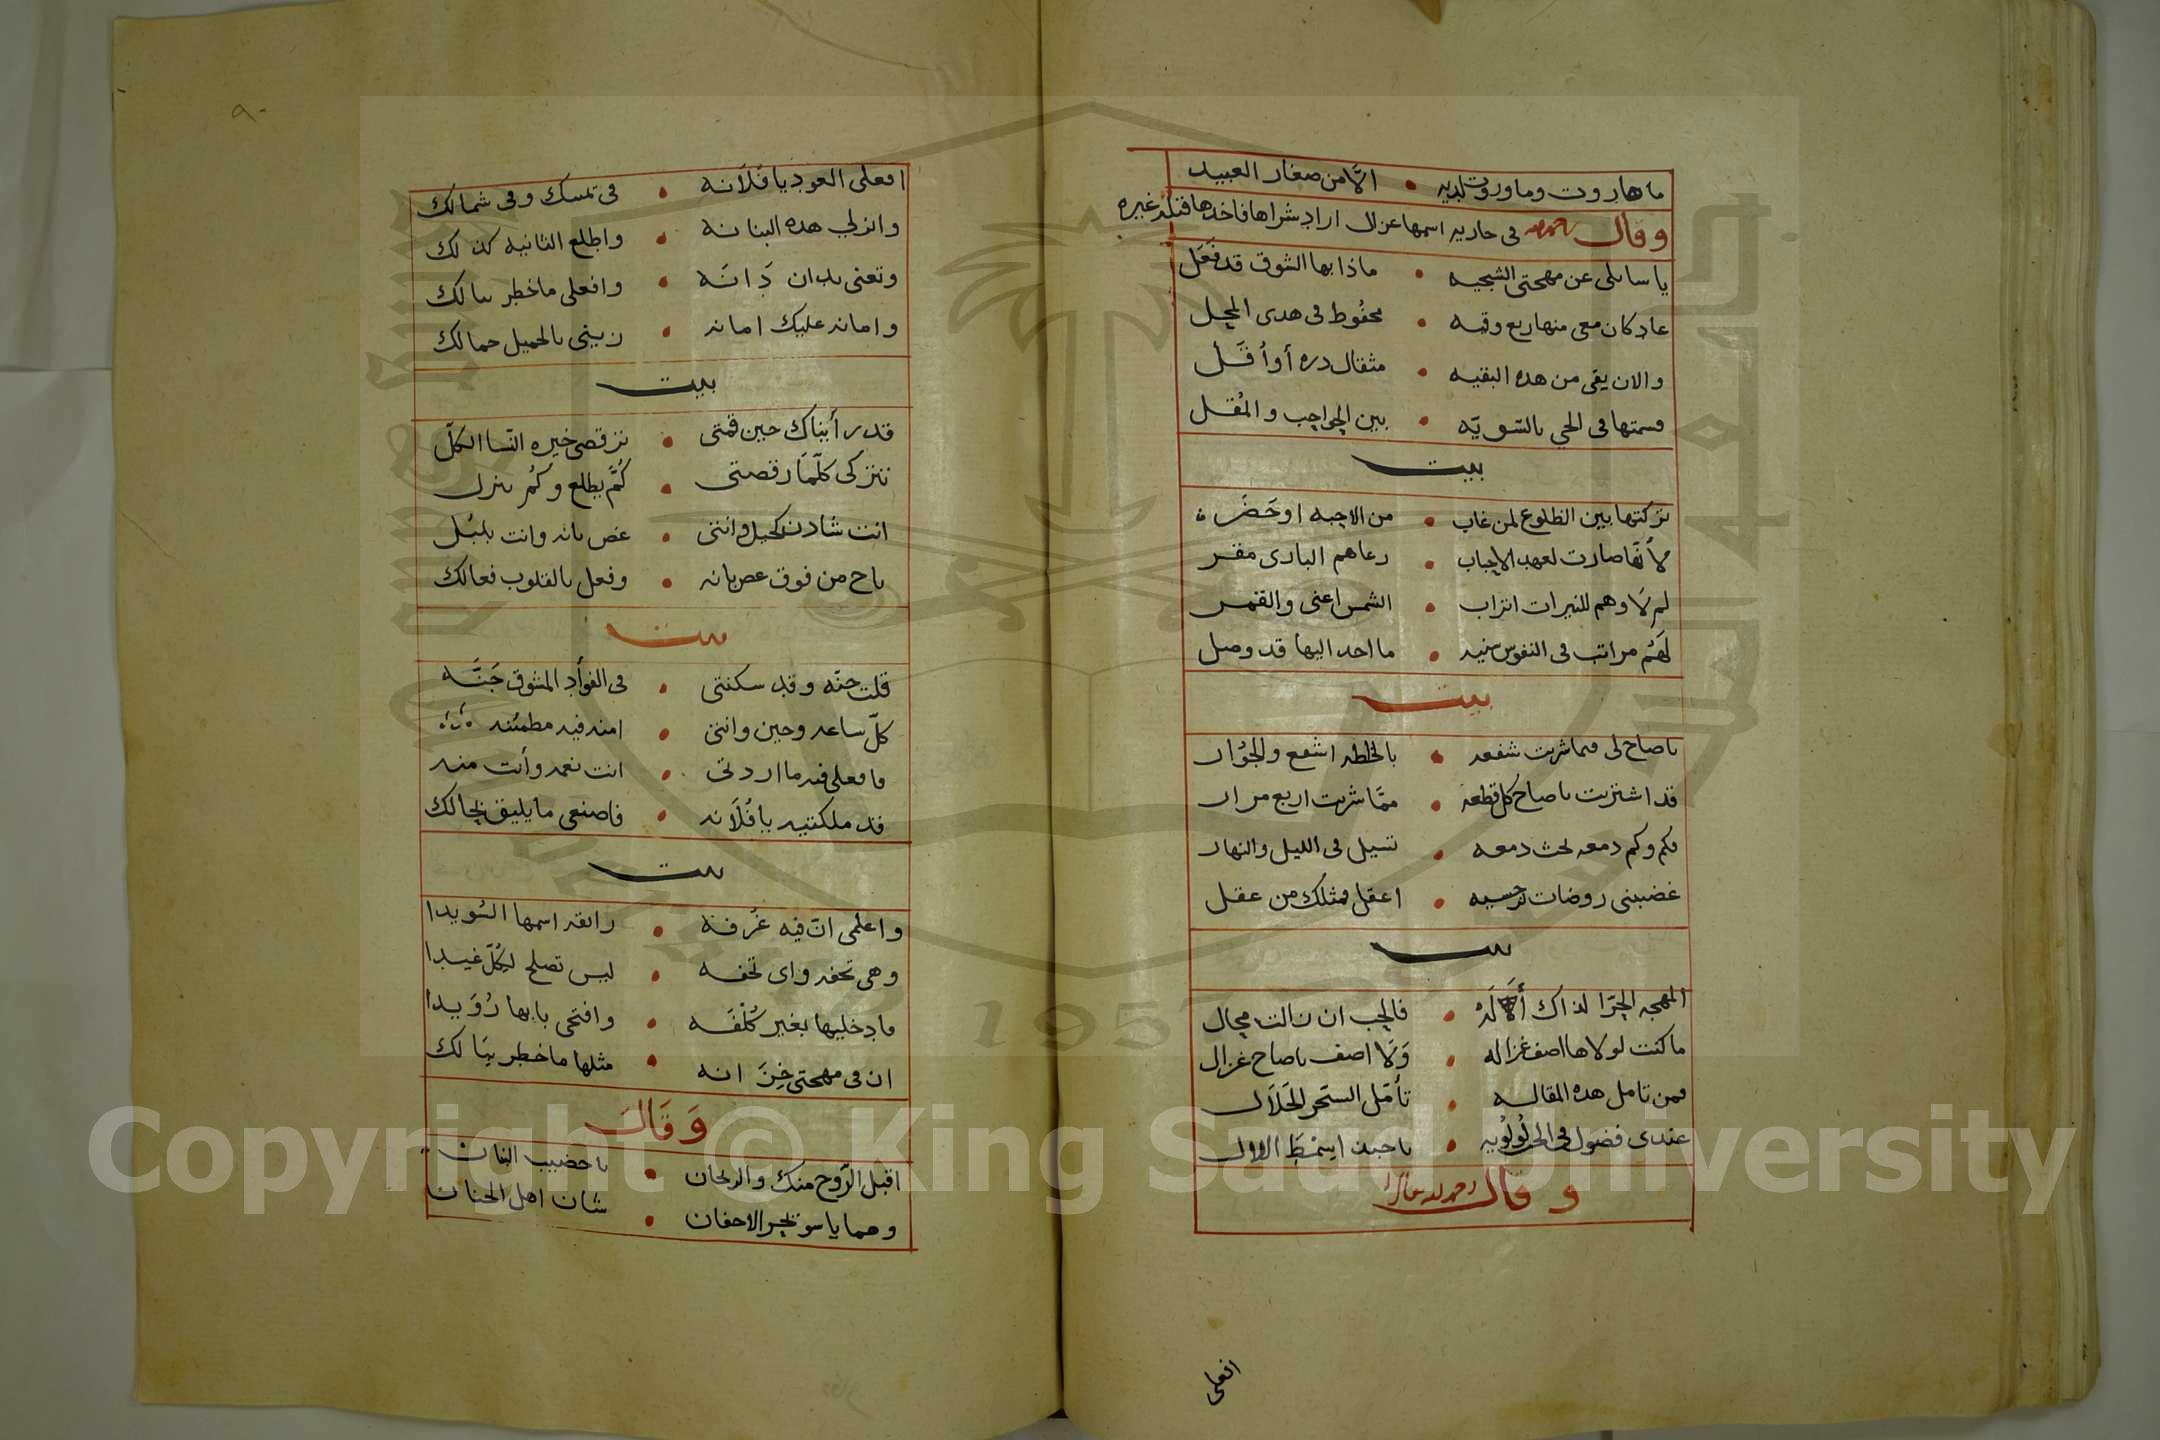 ما هاروت وماروت لديه • الّا من صغار العبيد
وقال رحمه الله في جاريه اسمها غزال اراد شراها فاخدها قبله غيره
يا سايلي عن مهجتي الشجيه • ماذا بها الشوق قد فعل
عاد كان معي منها ربع وقيه • محفوظ في هدى المحل
والان بقي من هده البقيه • مثقال دره أو أقَل
قسمتها في الحي بالسّويّه • بين الحواجب والمُقل
بيت
تركتها بين الظلوع لمن غاب • من الاحبه او حَضَره
لأنّها صارت لعهد الاحباب • رعاهم البارى مقر
لم لا وهم للنيرات اتراب • الشمس اعني والقمر
لهَم مراتب في النفوس سنيه • ما احد اليها قد وصل
بيت
يا صاح لي فيما شريت شفعه • بالخلطه اشفع والجُوار
قد اشتريت يا صاح كل قطعه • ممّا شريت اربع مرار
فكم وكم دمعه تحث دمعه • تسيل في الليل والنهار
غضبيني روضات نرجسيه • اعقل فمثلك من عقل
بيت
المهجه الحرّا لذاك أَلَه • فالحب ان زالت محال
ما كنت لولاها اصف غزاله • وَلَا اصف يا صاح غزال
فمن تامل هده المقاله • تأمّل السحر الحَلَال
عندى فضول في الحر لُولُويه
وقال رحمه الله
افعلي
٩٠
افعلى العود يا فُلَانه • في يمينك وفي شمالك
وانزلي هده البنانه • واطلع الثانيه كذلك
وتعني بدان دَانَه • وافعلى ما خطر ببالك
وامانه عليك امانه • زيني بالجميل جمالك
بيت
قد رأيناك حين قمتى • ترقصي خيره النّسا الكلّ
نتركى كلّمَا رقصتى • كُمّ يطلع وكُم ينزل
انت شادن كحيل وانتى • غصن بانه وانت بلبُل
ناح من فوق غصن بانه • وفعل بالقلوب فعالك
بيت
قلت جنّه وقد سكنتى • في الفوأد المشوق جَنَّه
كلّ ساعه وحين وانتي • امنه فيه مطمئنه
فافعلى فيه ما اردتى • انت نعمه وأنت منه
قد ملكتيه يا فُلَانه • فاصنعي ما يليق بحالك
بيت
واعلمي انّ فيه غُرفة • رائقه اسمها السُّويدا
وهي تحفه واى تحفه • ليس تصلح لكُلّ غيدا
فادخليها بغير كُلْفَه • وافتحى بابها رُوَيدا
ان في مهجتي خِزَانه • مثلها ما خطر ببَالك
وَقَالَ
اقبل الرّوح منك والريحان • يا قضيب البان
وهما يا سويجي الاجفان • شان اهل الجنان